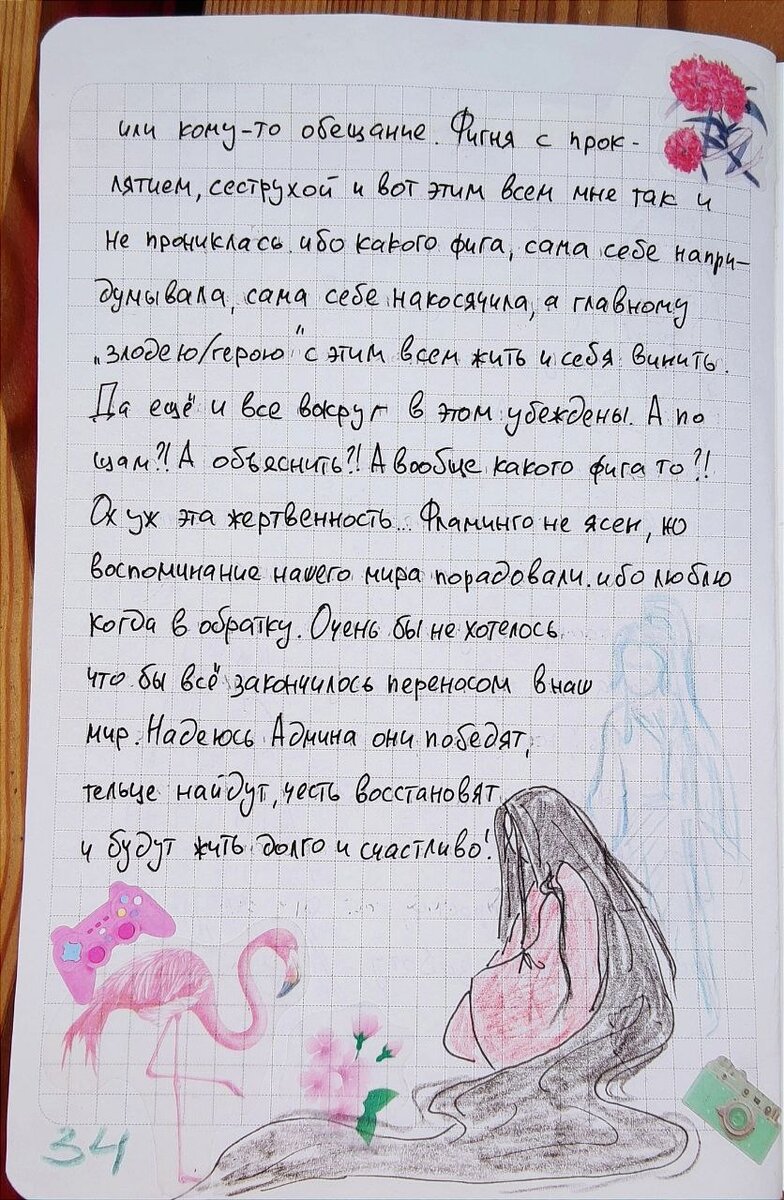 или кому-то обещание. Фигня с прок-
лятием, сеструхой и вот этим всем мне так и
не прониклась. ибо какого фига, сама себе напри-
думывала, сама себе накосячила, а главному
„злодею/герою" с этим всем жить и себя винить.
Да ещё и все вокруг в этом убеждены. А по
щам?! А объяснить?! А вообще какого фига то?!
Ох уж эта жертвенность... Фламинго не ясен, но
воспоминание нашего мира порадовали. ибо люблю
когда в обратку. Очень бы не хотелось
что бы всё закончилось переносом в наш
мир. Надеюсь Админа они победят,
тельце найдут, честь восстановят
и будут жить долго и счастливо!
34